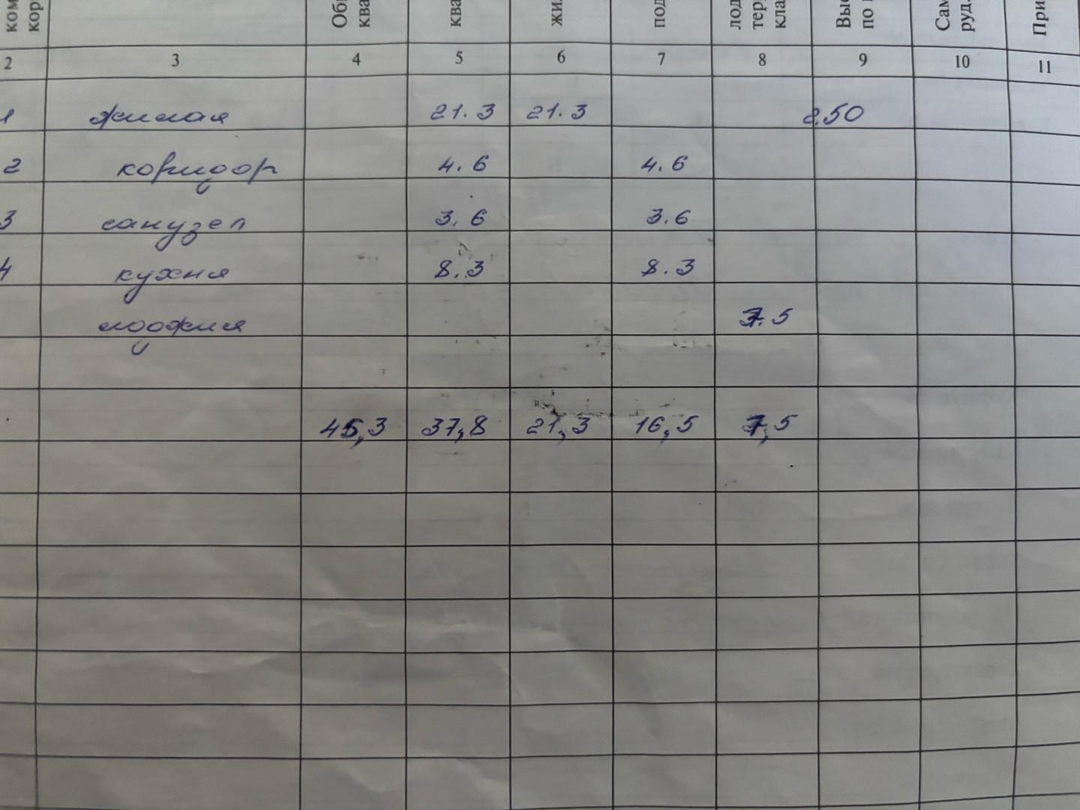 ком кор Об ква ква жил под лод тер кла Выс по Сам руд. При
2 3 4 5 6 7 8 9 10 11
1 жилая 21.3 21.3 2,50
2 коридор 4.6 4.6
3 санузел 3.6 3.6
4 кухня 8.3 8.3
лоджия 7.5
45,3 37,8 21,3 16,5 7,5